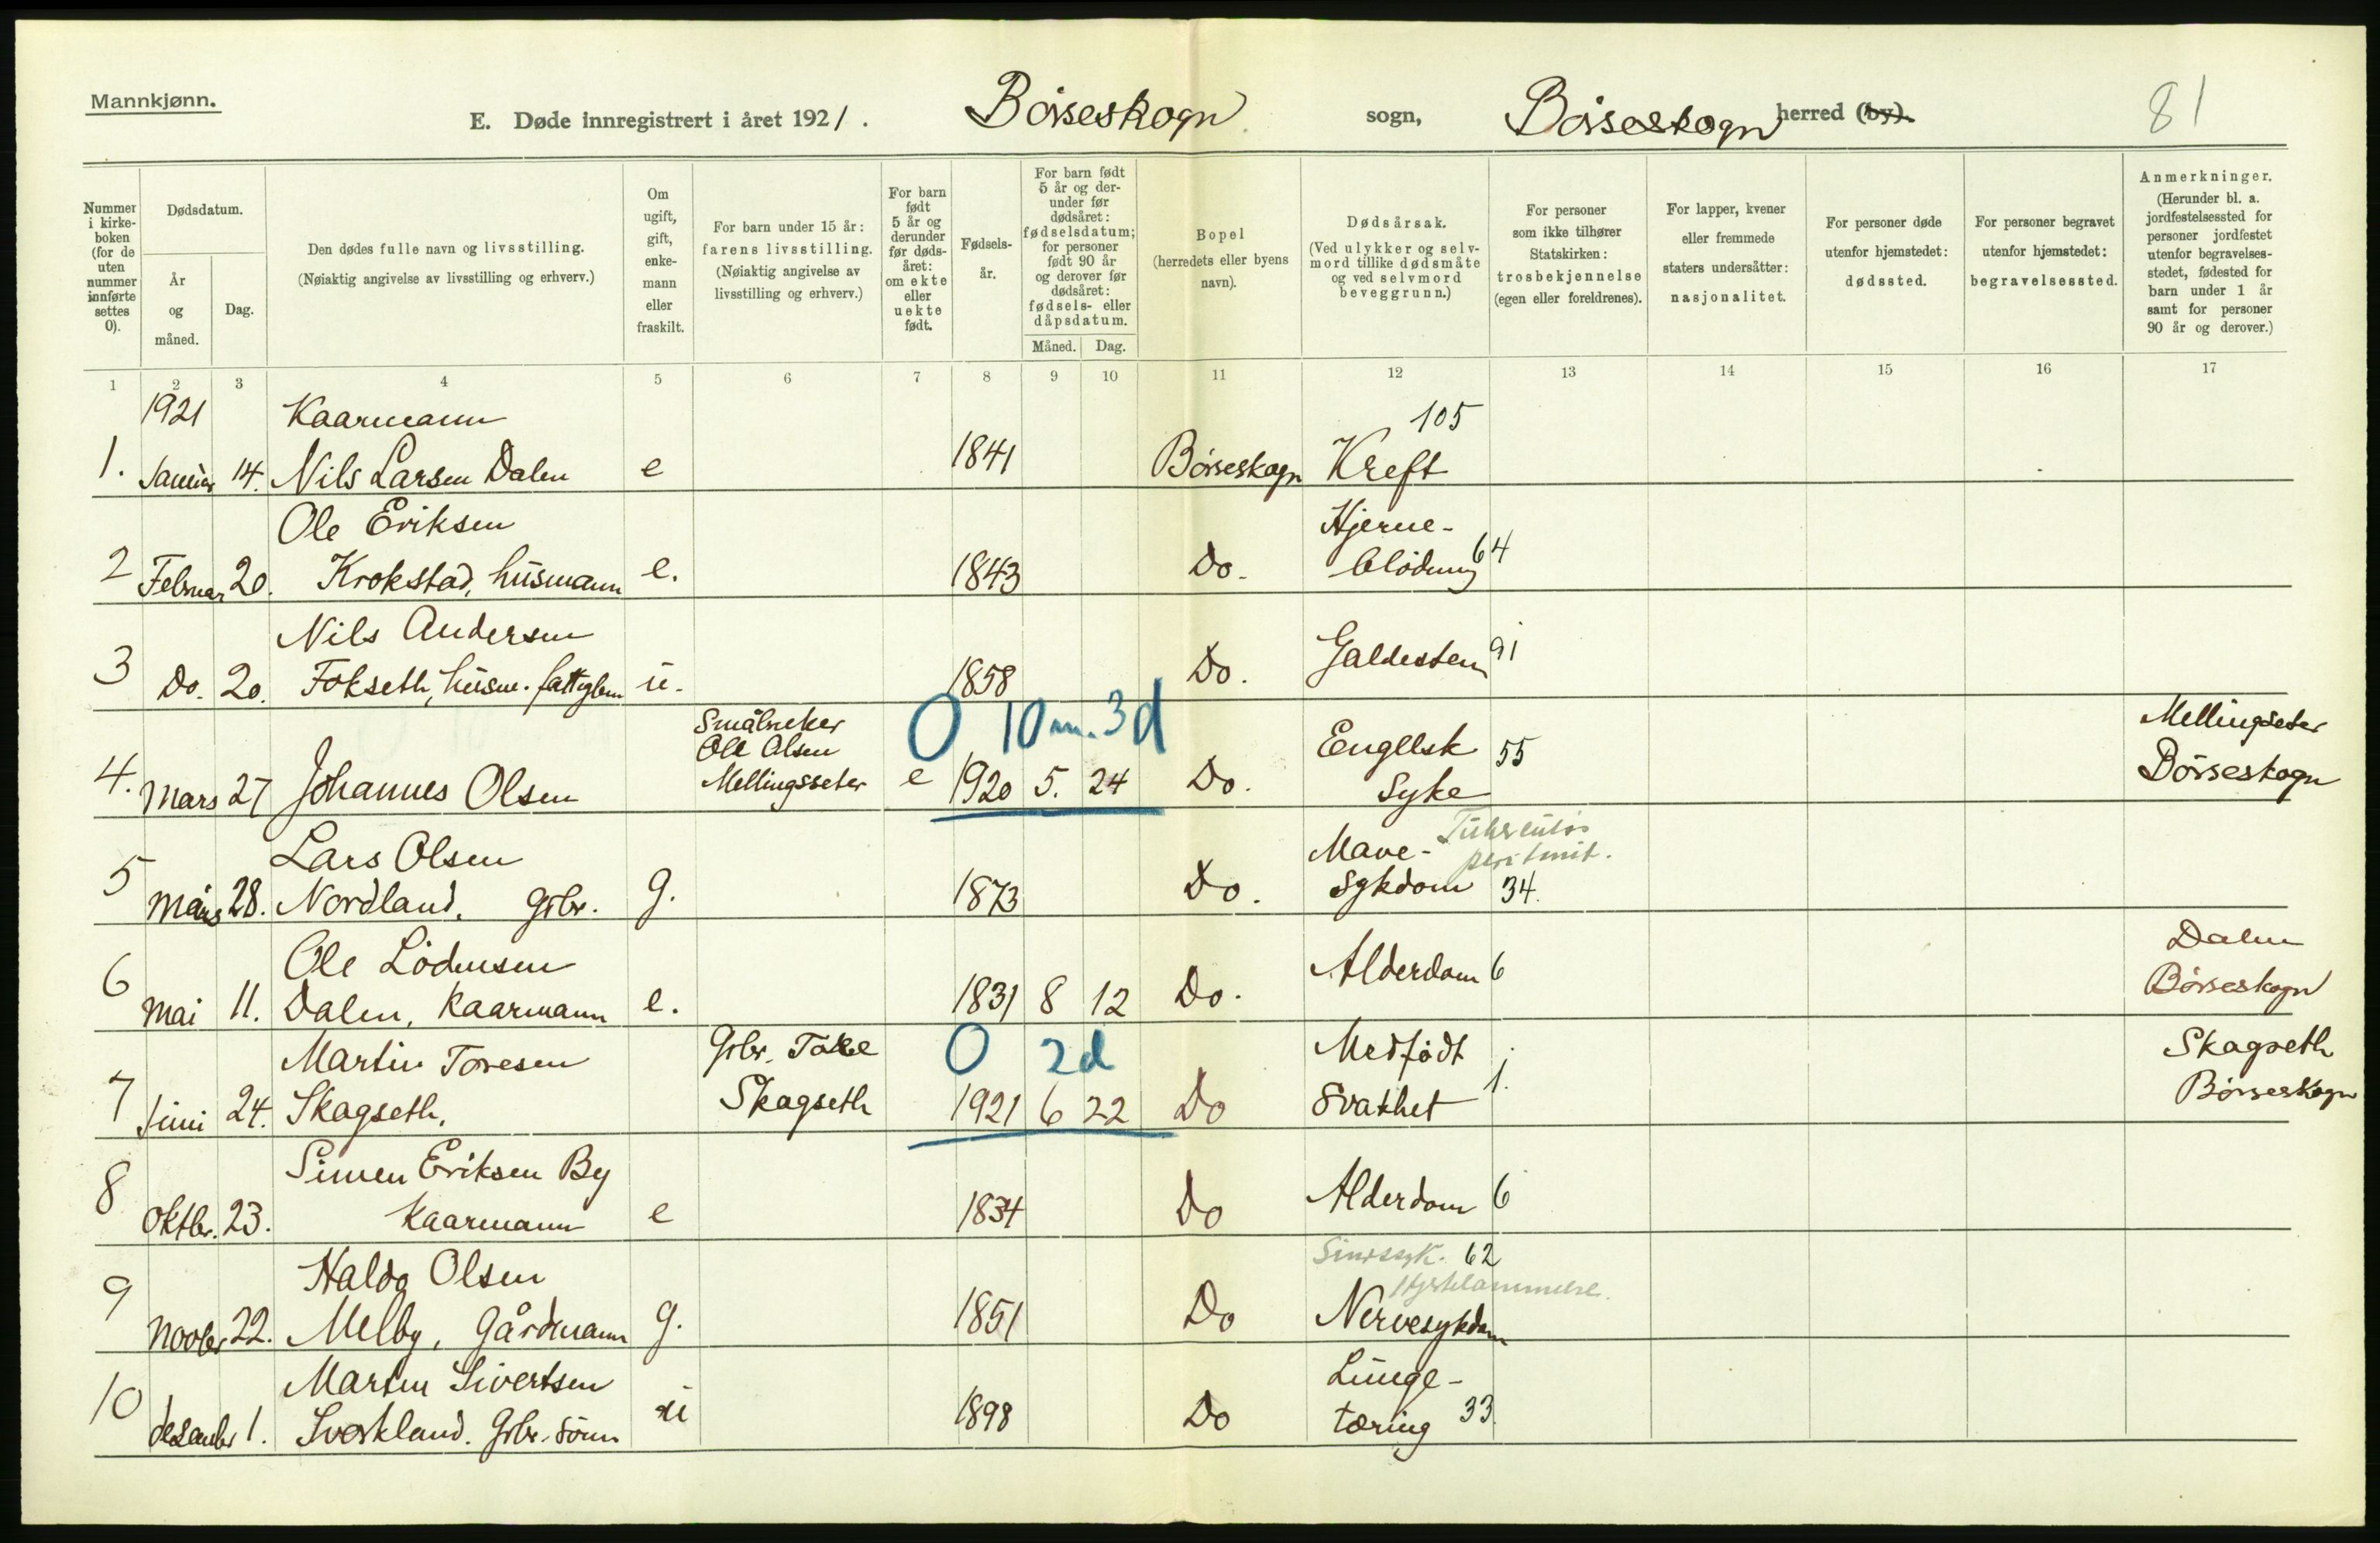 Mannkjønn.
E. Døde innregistrert i året 1921. Børseskogn sogn, Børseskogn herred (by).
81
Nummer i kirkeboken (for de uten nummer innførte settes 0).
Dødsdatum.
År og måned.
Dag.
Den dødes fulle navn og livsstilling.
(Nøiaktig angivelse av livsstilling og erhverv.)
Om ugift, gift, enkemann eller fraskilt.
For barn under 15 år: farens livsstilling.
(Nøiaktig angivelse av livsstilling og erhverv.)
For barn født 5 år og derunder før dødsåret: om ekte eller uekte født.
Fødselsår.
For barn født 5 år og derunder før dødsåret: fødselsdatum; for personer født 90 år og derover før dødsåret: fødsels- eller dåpsdatum.
Måned. Dag.
Bopel (herredets eller byens navn).
Dødsårsak.
(Ved ulykker og selvmord tillike dødsmåte og ved selvmord beveggrunn.)
For personer som ikke tilhører Statskirken: trosbekjennelse (egen eller foreldrenes).
For lapper, kvener eller fremmede staters undersåtter: nasjonalitet.
For personer døde utenfor hjemstedet: dødssted.
For personer begravet utenfor hjemstedet: begravelsessted.
Anmerkninger.
(Herunder bl. a. jordfestelsessted for personer jordfestet utenfor begravelsesstedet, fødested for barn under 1 år samt for personer 90 år og derover.)
1 2 3 4 5 6 7 8 9 10 11 12 13 14 15 16 17
1921 Kaarmann 105
1. Januar 14. Nils Larsen Dalen e 1841 Børseskogn Kreft
Ole Eriksen Hjerne-
2 Februar 20. Krokstad, husmann e. 1843 Do. blødning 64
Nils Andersen
3 Do. 20. Fokseth, husm. fattiglem u. 1858 Do. Galdesten 91
Småbruker 0 10 m. 3 d Mellingseter
Ole Olsen Engelsk 55
4. Mars 27 Johannes Olsen Mellingsseter e 1920 5. 24 Do. Syke Børseskogn
Lars Olsen Mave- Tuberculøs peritonit.
5 Mars 28. Nordland, Grbr. g. 1873 Do. sykdom 34.
Ole Lødensen Dalen
6 Mai 11. Dalen, Kaarmann e. 1831 8 12 Do. Alderdom 6 Børseskogn
Martin Toresen Grbr. Tore 0 2 d Medfødt Skagseth
7 Juni 24. Skagseth, Skagseth 1921 6 22 Do Svakhet 1. Børseskogn
Simen Eriksen By
8 Oktbr. 23. Kaarmann e 1834 Do Alderdom 6
Haldo Olsen Sinssyk. 62
Hjertelammelse.
9 Novbr 22. Melby, Gårdmann g. 1851 Do Nervesykdom
Martin Sivertsen Lunge-
10 desember 1. Svorkland. Grbr. sønn u 1898 Do tæring 33